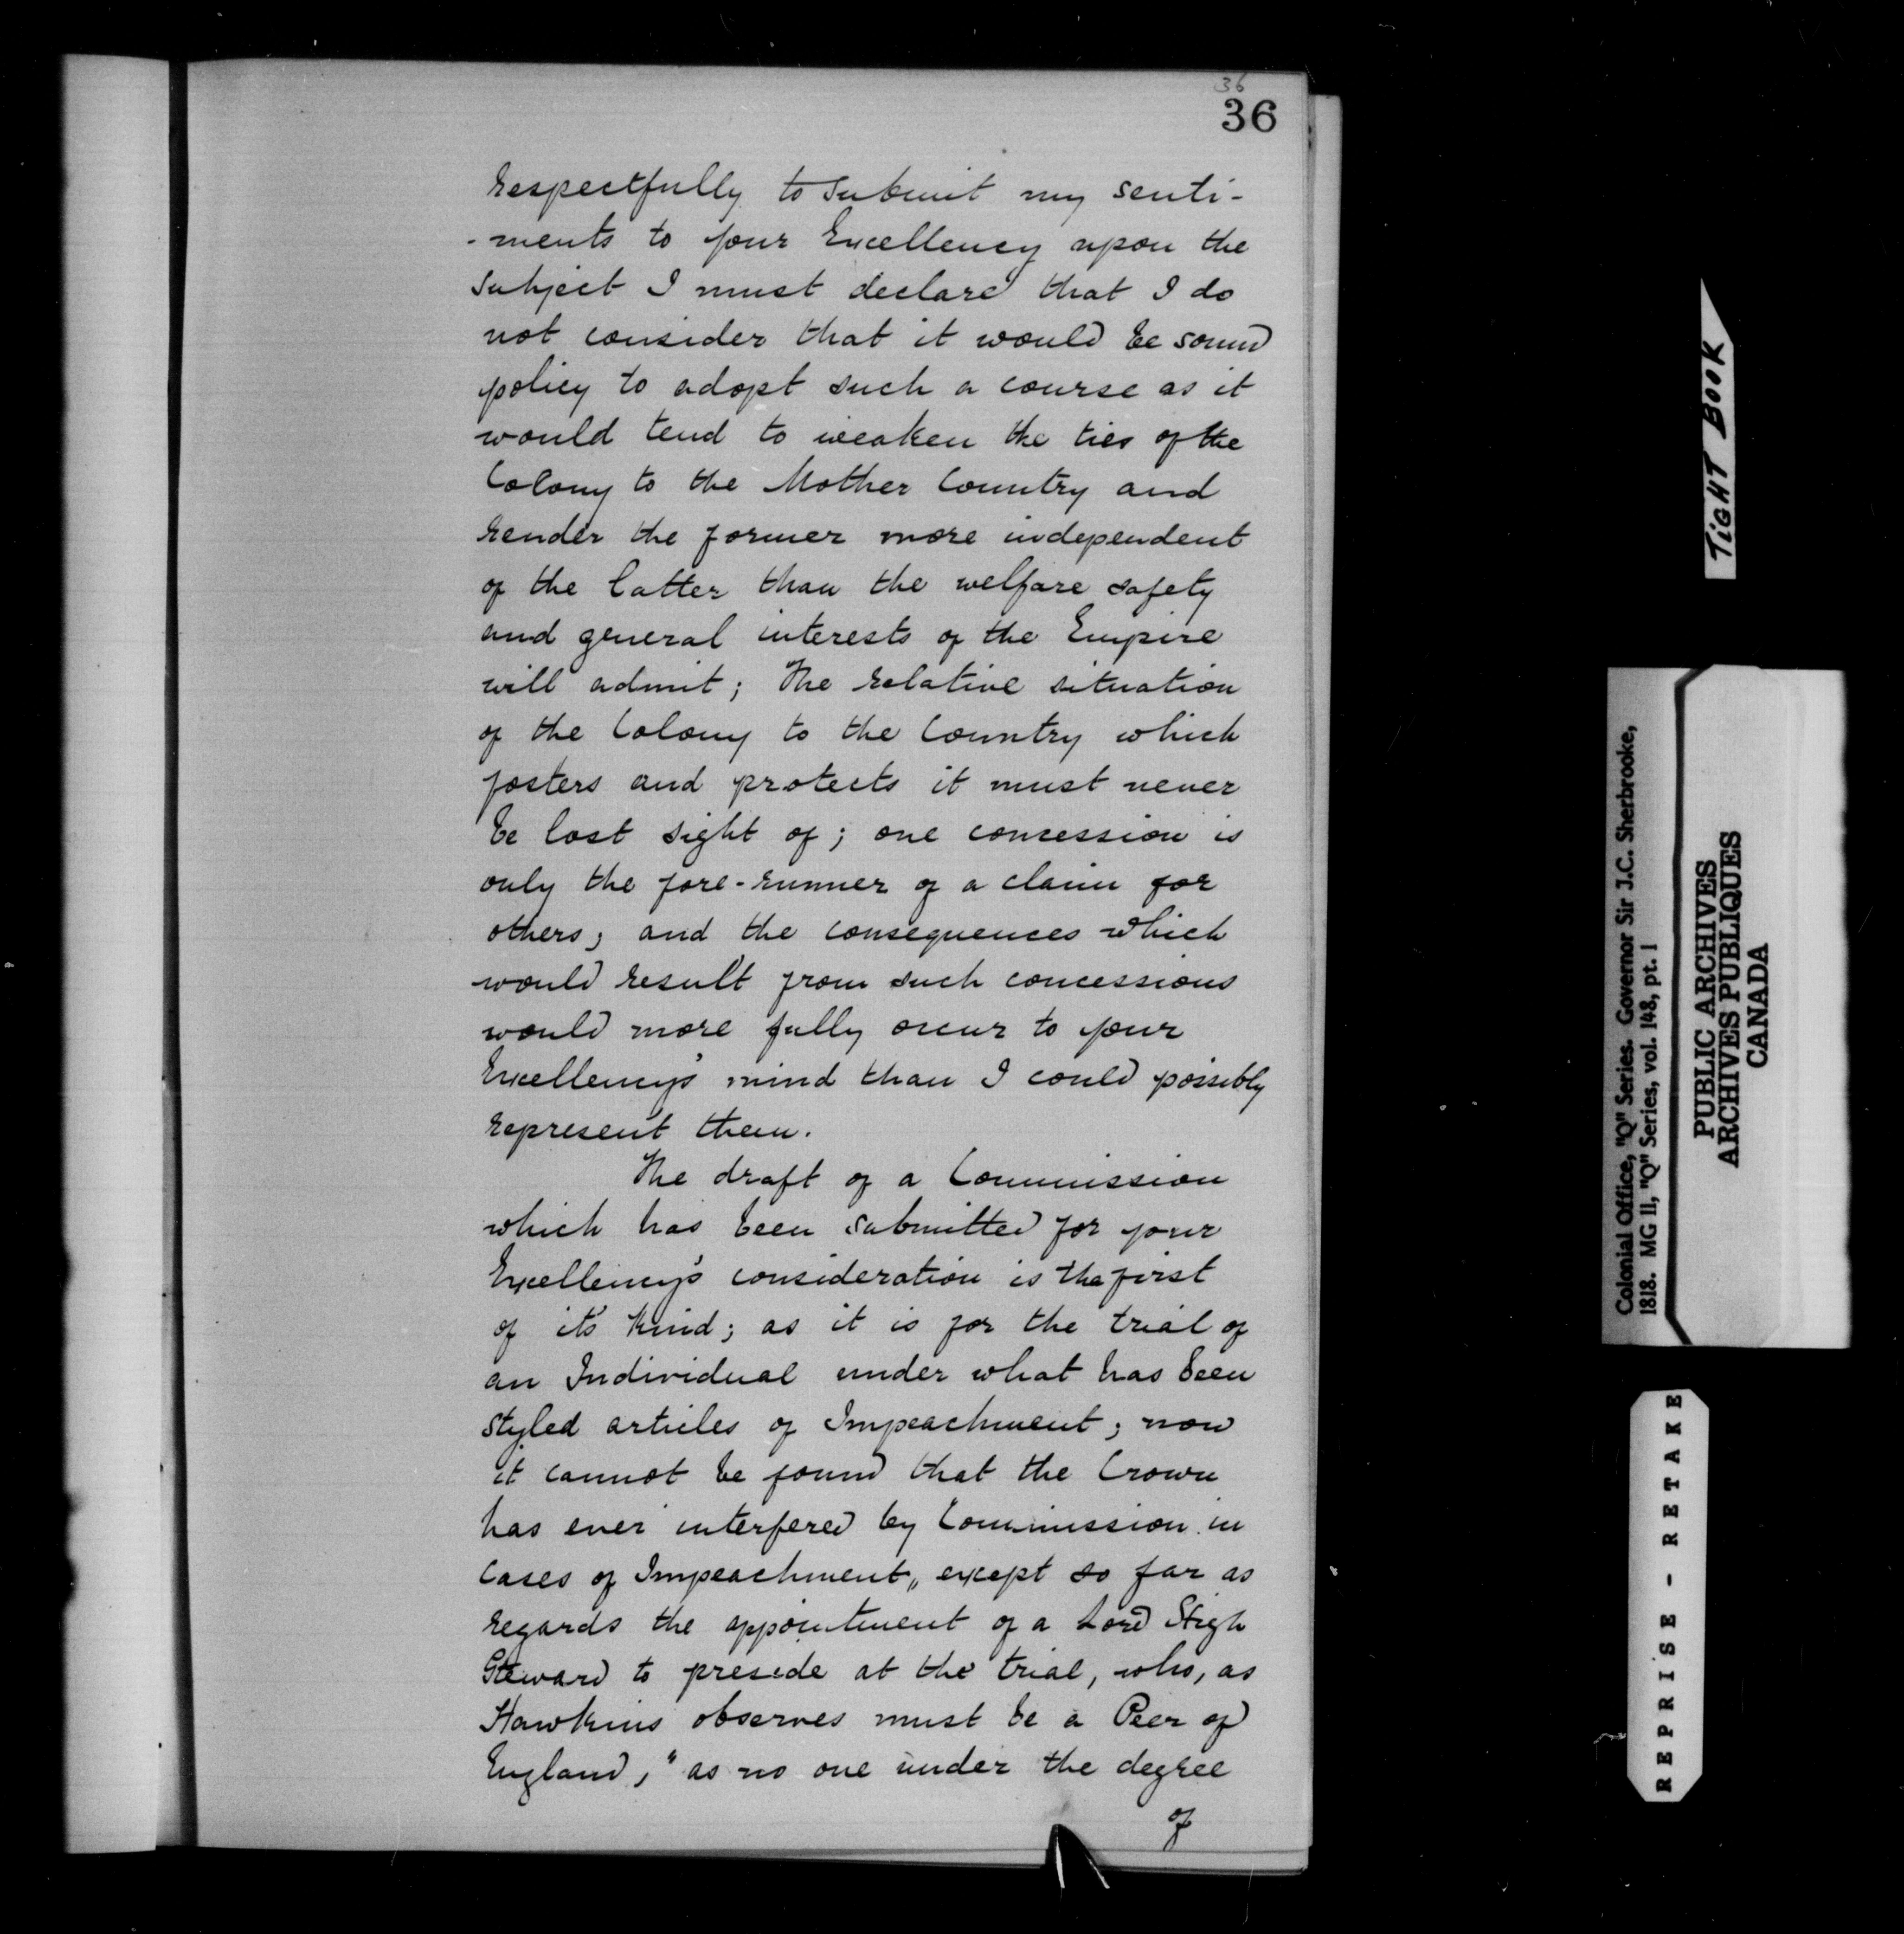 36
36
respectfully to submit my senti-
-ments to your Excellency upon the
subject I must declare that I do
not consider that it would be sound
policy to adopt such a course as it
would tend to weaken the ties of the
Colony to the Mother Country and
render the former more independent
of the latter than the welfare safety
and general interests of the Empire
will admit; The relative situation
of the Colony to the Country which
fosters and protects it must never
be lost sight of; one concession is
only the fore-runner of a claim for
others; and the consequences which
would result from such concessions
would more fully occur to your
Excellency's mind than I could possibly
represent them.
The draft of a Commission
which has been submitted for your
Excellency's consideration is the first
of its kind; as it is for the trial of
an Individual under what has been
styled articles of Impeachment; now
it cannot be found that the Crown
has ever interfered by Commission in
cases of Impeachment, except so far as
regards the appointment of a Lord High
Steward to preside at the trial, who, as
Hawkins observes must be a Peer of
England, "as no one under the degree
of
TIGHT BOOK
Colonial Office, "Q" Series. Governor Sir J.C. Sherbrooke,
1818. MG 11, "Q" Series, vol. 148, pt. 1
PUBLIC ARCHIVES
ARCHIVES PUBLIQUES
CANADA
REPRISE - RETAKE